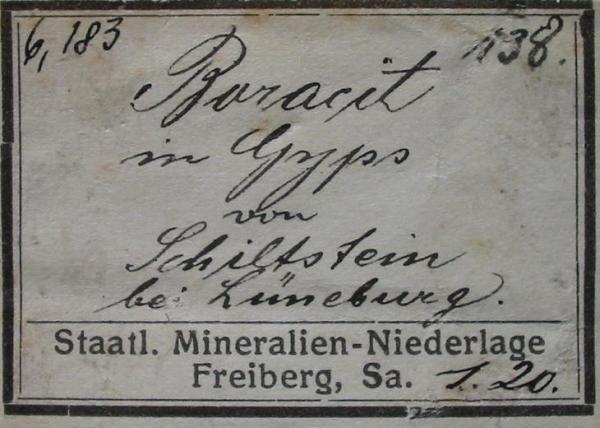 6,183 1138.
Boracit
in Gyps
von
Schiltstein
bei Lüneburg.
Staatl. Mineralien-Niederlage
Freiberg, Sa. 1.20.